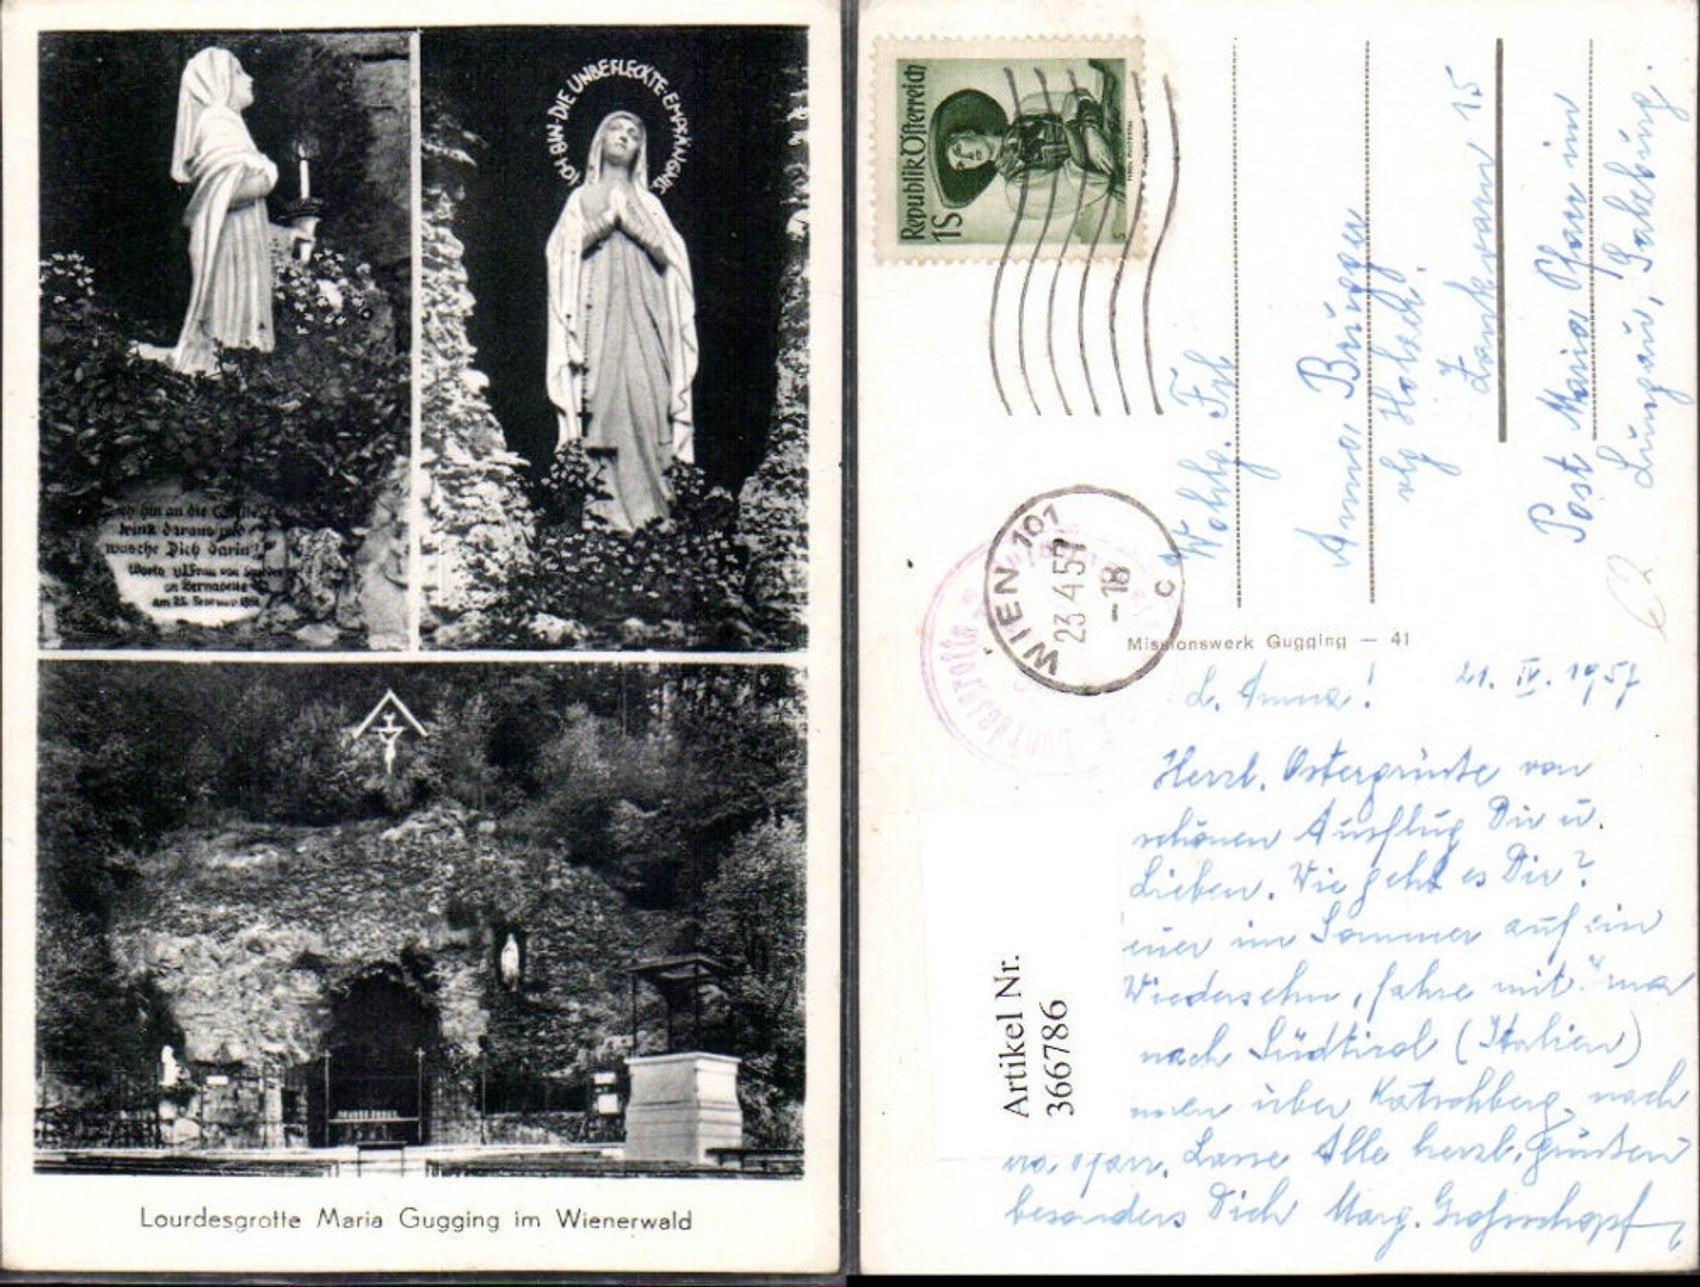 ICH BIN DIE UNBEFLECKTE EMPFÄNGNIS
hin an die
trink daraus
wasche Dich darin!
an Bernadette
Lourdesgrotte Maria Gugging im Wienerwald
Republik Österreich
1S
WIEN 101
23 4 57
-18
C
Lourdesgrotte
Wohlg. Frl
Anna Brugger
vlg
15
Post Maria Pfarr im
Lungau, Salzburg.
Missionswerk Gugging — 41
L. Anna! 21. IV. 1957
Herzl. Ostergrüße von
schönen Ausflug Dir u.
Lieben. Wie geht es Dir?
im Sommer auf ein
Wiedersehn, fahre mit
nach Südtirol (Italien)
über Katschberg, nach
Lasse Alle herzl. grüßen
besonders Dich Marg.
Artikel Nr.
366786